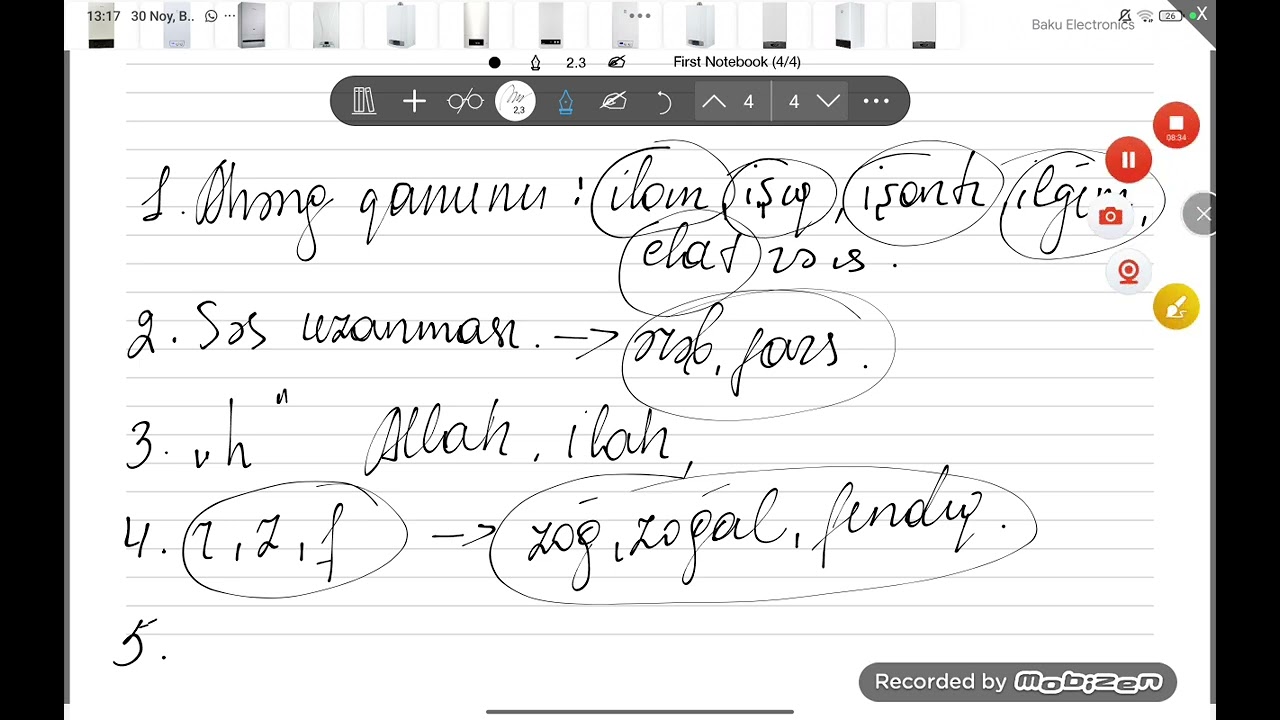 13:17 30 Noy, B.. ...
Baku Electronics
26
X
2.3 First Notebook (4/4)
2,3 4 4
08:34
1. Ahəng qanunu : ilan, işıq, işantı, ilğım,
elat və s.
2. Səs uzanması. → ərəb, fars.
3. „h" Allah, ilah,
4. r, z, f → zoğ, zoğal, fındıq.
5.
Recorded by mobizen